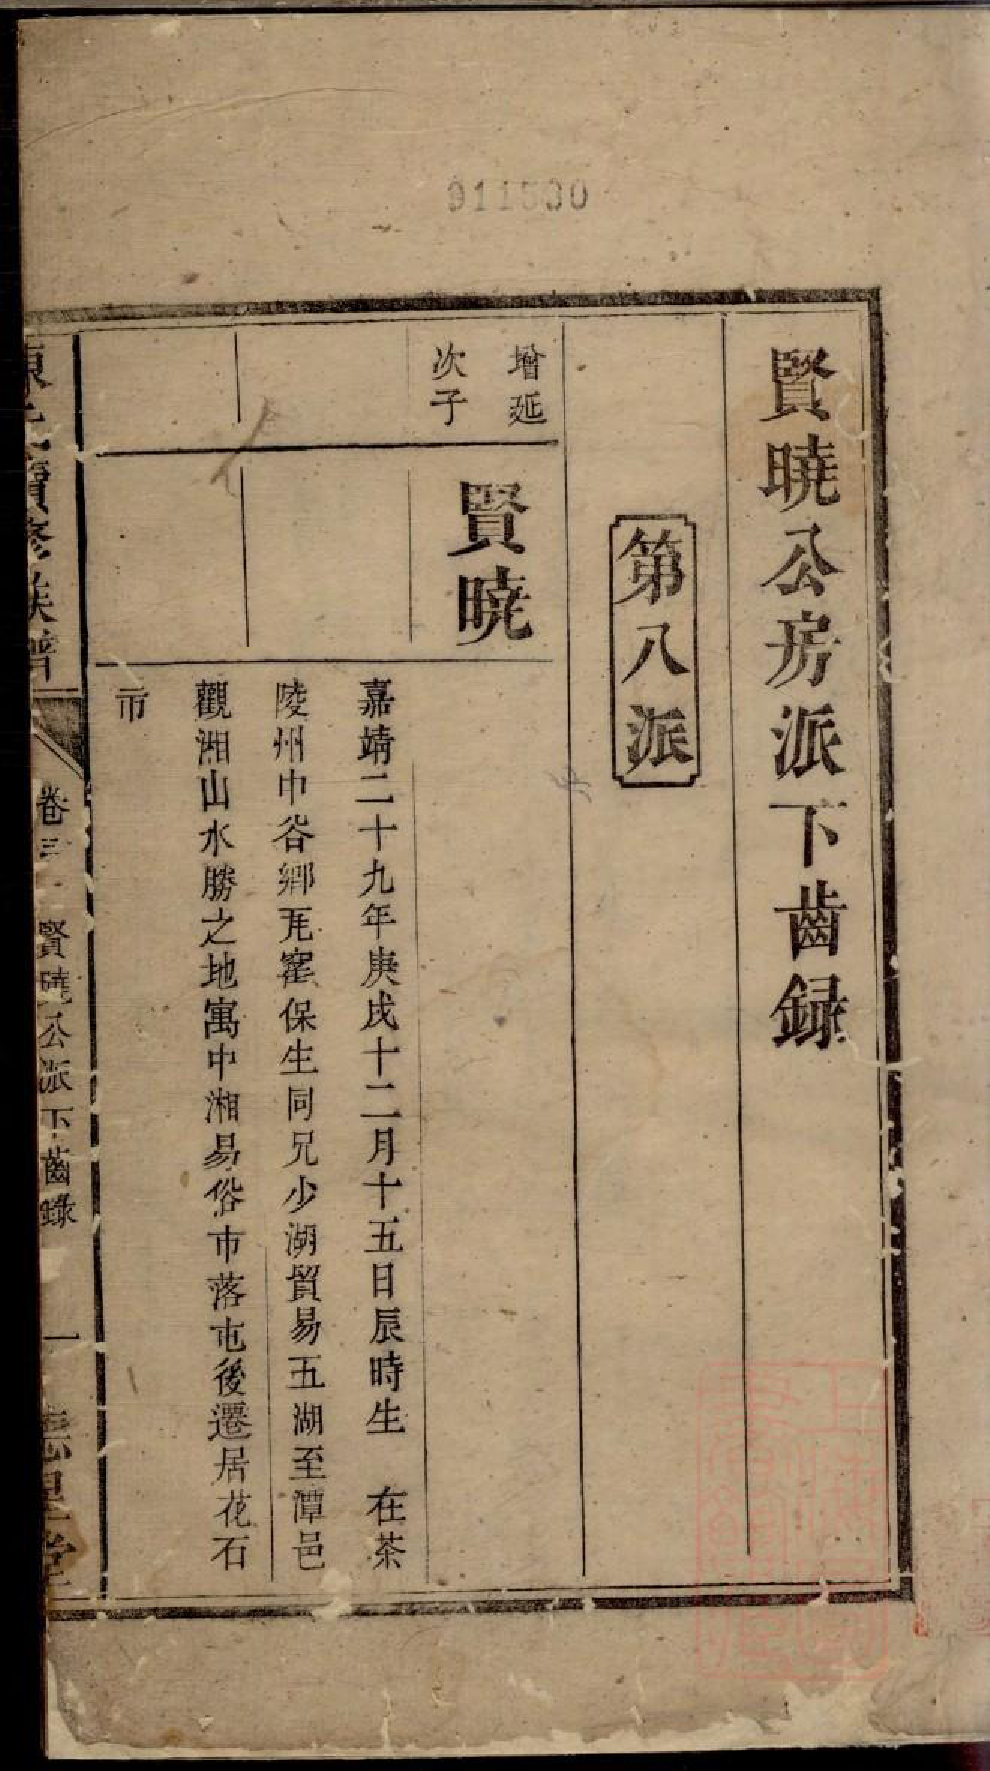 911530
賢曉公房派下齒録
第八派
增延
次子
賢曉
嘉靖二十九年庚戌十二月十五日辰時生 在茶
陵州中谷鄉瓦窰保生同兄少湖貿易五湖至潭邑
觀湘山水勝之地寓中湘易俗市落屯後遷居花石
市
氏續修族譜
卷三
賢曉公派下齒錄
一
星堂